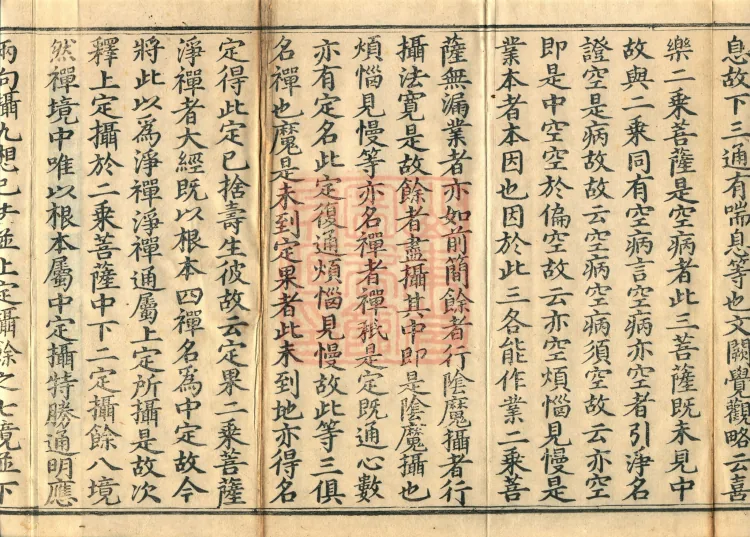 息故下三通有喘息等也文闕覺觀略云喜
樂二乘菩薩是空病者此三菩薩既未見中
故與二乘同有空病言空病亦空者引淨名
證空是病故故云空病空病須空故云亦空
即是中空空於偏空故云亦空煩惱見慢是
業本者本因也因於此三各能作業二乘菩
薩無漏業者亦如前簡餘者行陰魔攝者行
攝法寬是故餘者盡攝其中即是陰魔攝也
煩惱見慢等亦名禪者禪秖是定既通心數
亦有定名此定復通煩惱見慢故此等三俱
名禪也魔是未到定果者此未到地亦得名
定得此定已捨壽生彼故云定果二乘菩薩
淨禪者大經既以根本四禪名為中定故今
將此以為淨禪淨禪通屬上定所攝是故次
釋上定攝於二乘菩薩中下二定攝餘八境
然禪境中唯以根本屬中定攝特勝通明應
兩句攝九想已去並上定攝餘之七境並下